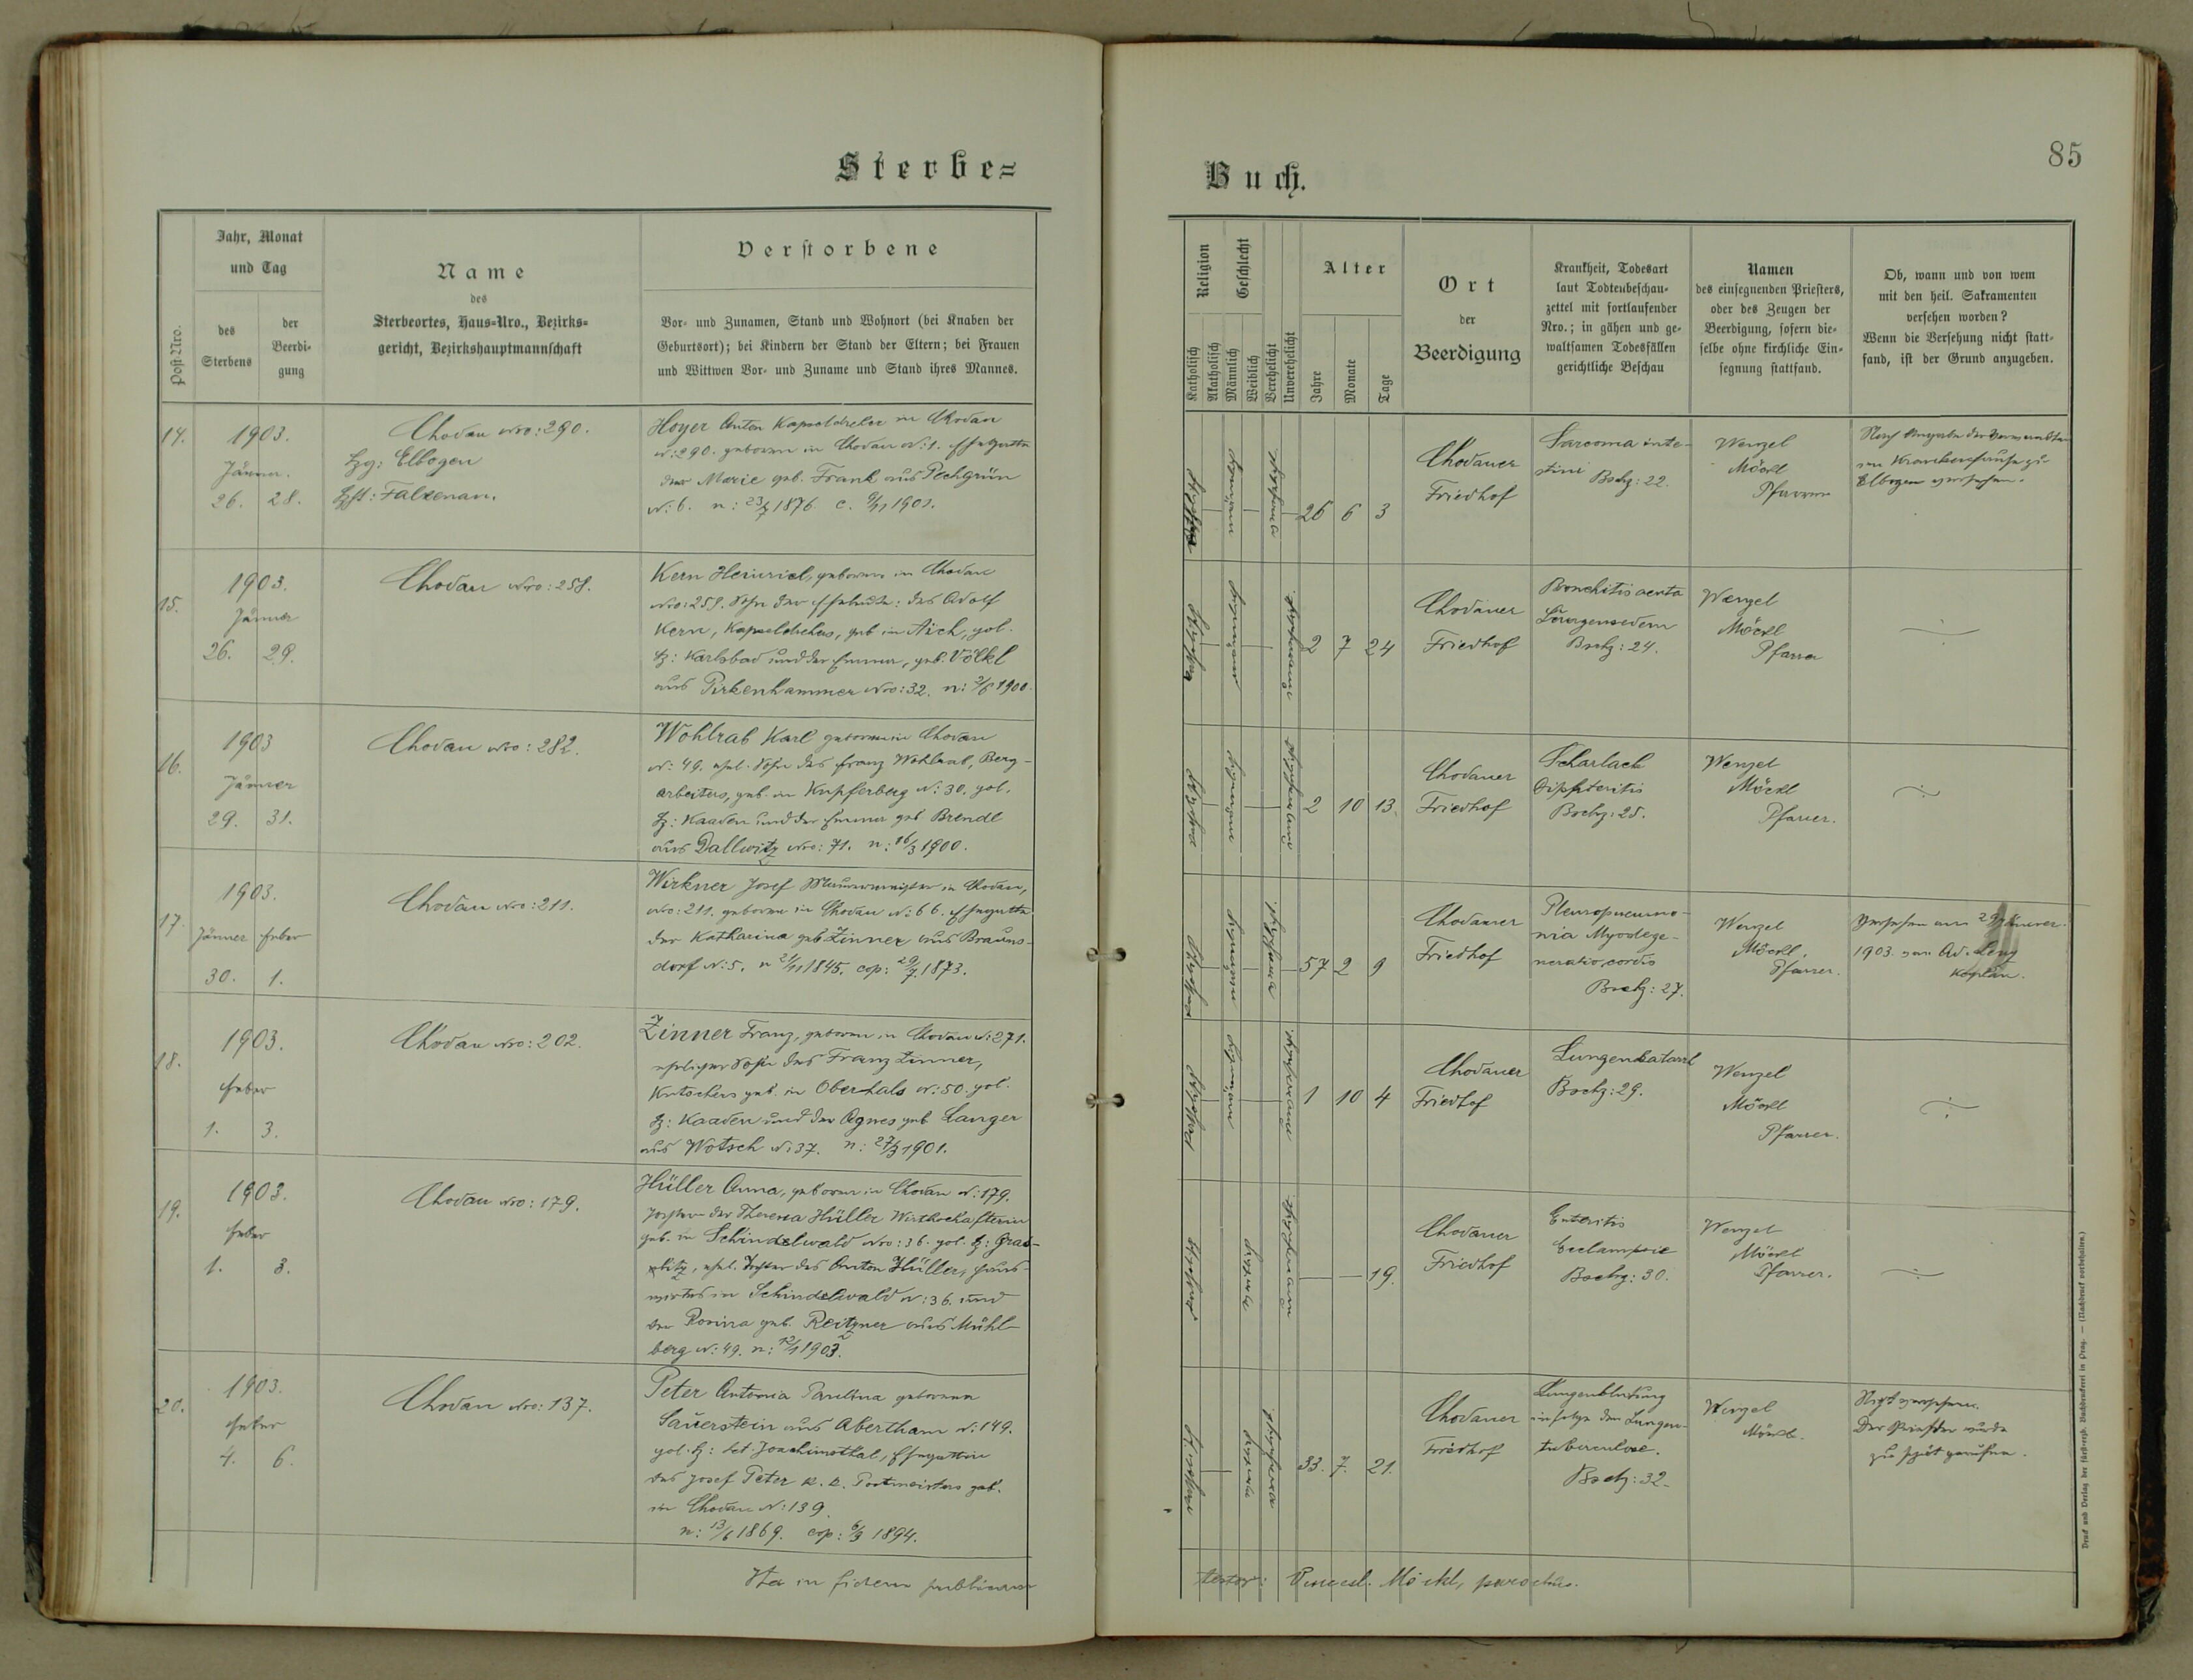 Sterbe=
Jahr, Monat
und Tag
Post-Nro.
des
Sterbens
der
Beerdi-
gung
Name
des
Sterbeortes, Haus-Nro., Bezirks-
gericht, Bezirkshauptmannschaft
Verstorbene
Vor- und Zunamen, Stand und Wohnort (bei Knaben der
Geburtsort); bei Kindern der Stand der Eltern; bei Frauen
und Wittwen Vor- und Zuname und Stand ihres Mannes.
14.
1903.
Jänner.
26. 28.
Chodau Nro: 290.
Bzg: Elbogen
Bzht: Falkenau.
Hoyer Anton Kapseldreher in Chodau
N: 290. geboren in Chodau N: 1. Ehegatte
der Marie geb. Frank aus Pechgrün
N: 6. n: 23/7 1876 c. 9/11 1901.
15.
1903.
Jänner
26. 29.
Chodau Nro: 258.
Kern Heinrich, geboren in Chodau
Nro: 258. Sohn der Eheleute: des Adolf
Kern, Kapseldrehers, geb. in Aich, gol.
Bz: Karlsbad und der Emma, geb. Völkl
aus Pirkenhammer Nro: 32. n: 2/6 1900.
16.
1903
Jänner
29. 31.
Chodau Nro: 282.
Wohlrab Karl geboren in Chodau
N: 49. ehel. Sohn des Franz Wohlrab, Berg-
arbeiters, geb. in Kupferberg N: 30. gol.
Bz: Kaaden und der Emma geb Brendl
aus Dallwitz Nro: 71. n: 16/3 1900.
17.
1903.
Jänner Feber
30. 1.
Chodau Nro: 211.
Wirkner Josef Maurermeister in Chodau,
Nro: 211. geboren in Chodau N: 66. Ehegatte
der Katharina geb Zinner aus Brauns-
dorf N: 5. n 21/11 1845. cop: 29/7 1873.
18.
1903.
Feber
1. 3.
Chodau Nro: 202.
Zinner Franz, geboren in Chodau N: 271.
ehelicher Sohn des Franz Zinner,
Kutschers geb. in Oberhals N: 50. gol.
Bz: Kaaden und der Agnes geb Langer
aus Wotsch N: 37. n: 27/3 1901.
19.
1903.
Feber
1. 3.
Chodau Nro: 179.
Hüller Anna, geboren in Chodau N: 179.
Tochter der Theresia Hüller Wirthschafterin
geb. in Schindelwald Nro: 36. gol. Bz: Gras-
litz, ehel. Tochter des Anton Hüller, Haus-
wirtes in Schindelwald N: 36. und
der Rosina geb. Reitzner aus Mühl-
berg N: 49. n: 12/1 1903.
20.
1903.
Feber
4. 6.
Chodau Nro: 137.
Peter Antonia Paulina geborene
Sauerstein aus Abertham N: 149.
gol. Bz: Sct. Joachimsthal, Ehegattin
des Josef Peter k. k. Postmeisters geb.
in Chodau N: 139.
n: 13/6 1869. cop: 6/3 1894.
Ita in fidem publicam
Buch.
85
Religion
Katholisch
Akatholisch
Geschlecht
Männlich
Weiblich
Verehelicht
Unverehelicht
Alter
Jahre
Monate
Tage
Ort
der
Beerdigung
Krankheit, Todesart
laut Todtenbeschau-
zettel mit fortlaufender
Nro.; in gähen und ge-
waltsamen Todesfällen
gerichtliche Beschau
Namen
des einsegnenden Priesters,
oder des Zeugen der
Beerdigung, sofern die-
selbe ohne kirchliche Ein-
segnung stattfand.
Ob, wann und von wem
mit den heil. Sakramenten
versehen worden?
Wenn die Versehung nicht statt-
fand, ist der Grund anzugeben.
26 6 3
Chodauer
Friedhof
Sarcoma inte-
stini Bschz: 22.
Wenzel
Möckl
Pfarrer
Nach Angabe der Verwandten
im Krankenhause zu
Elbogen versehen.
2 7 24
Chodauer
Friedhof
Bronchitis acuta
Lungenoedem
Bschz: 24.
Wenzel
Möckl
Pfarrer
2 10 13.
Chodauer
Friedhof
Scharlach
Diphteritis
Bschz: 25.
Wenzel
Möckl
Pfarrer.
57 2 9
Chodauer
Friedhof
Pleuropneumo-
nia Myodege-
neratio, cordis
Bschz: 27.
Wenzel
Möckl.
Pfarrer.
Versehen am 29 Jänner
1903. von Ad. Leng
Kaplan.
1 10 4
Chodauer
Friedhof
Lungenkatarrh
Bschz: 29.
Wenzel
Möckl
Pfarrer.
19.
Chodauer
Friedhof
Enteritis
Eclampsie
Bschz: 30.
Wenzel
Möckl
Pfarrer.
33. 7. 21.
Chodauer
Friedhof
Lungenblutung
infolge der Lungen-
tuberculose.
Bschz: 32.
Wenzel
Möckl.
Nicht versehen.
Der Priester wurde
zu spät gerufen.
testor: Vencesl. Möckl, parochus.
Druck und Verlag der fürst-erzb. Buchdruckerei in Prag. — (Nachdruck vorbehalten.)